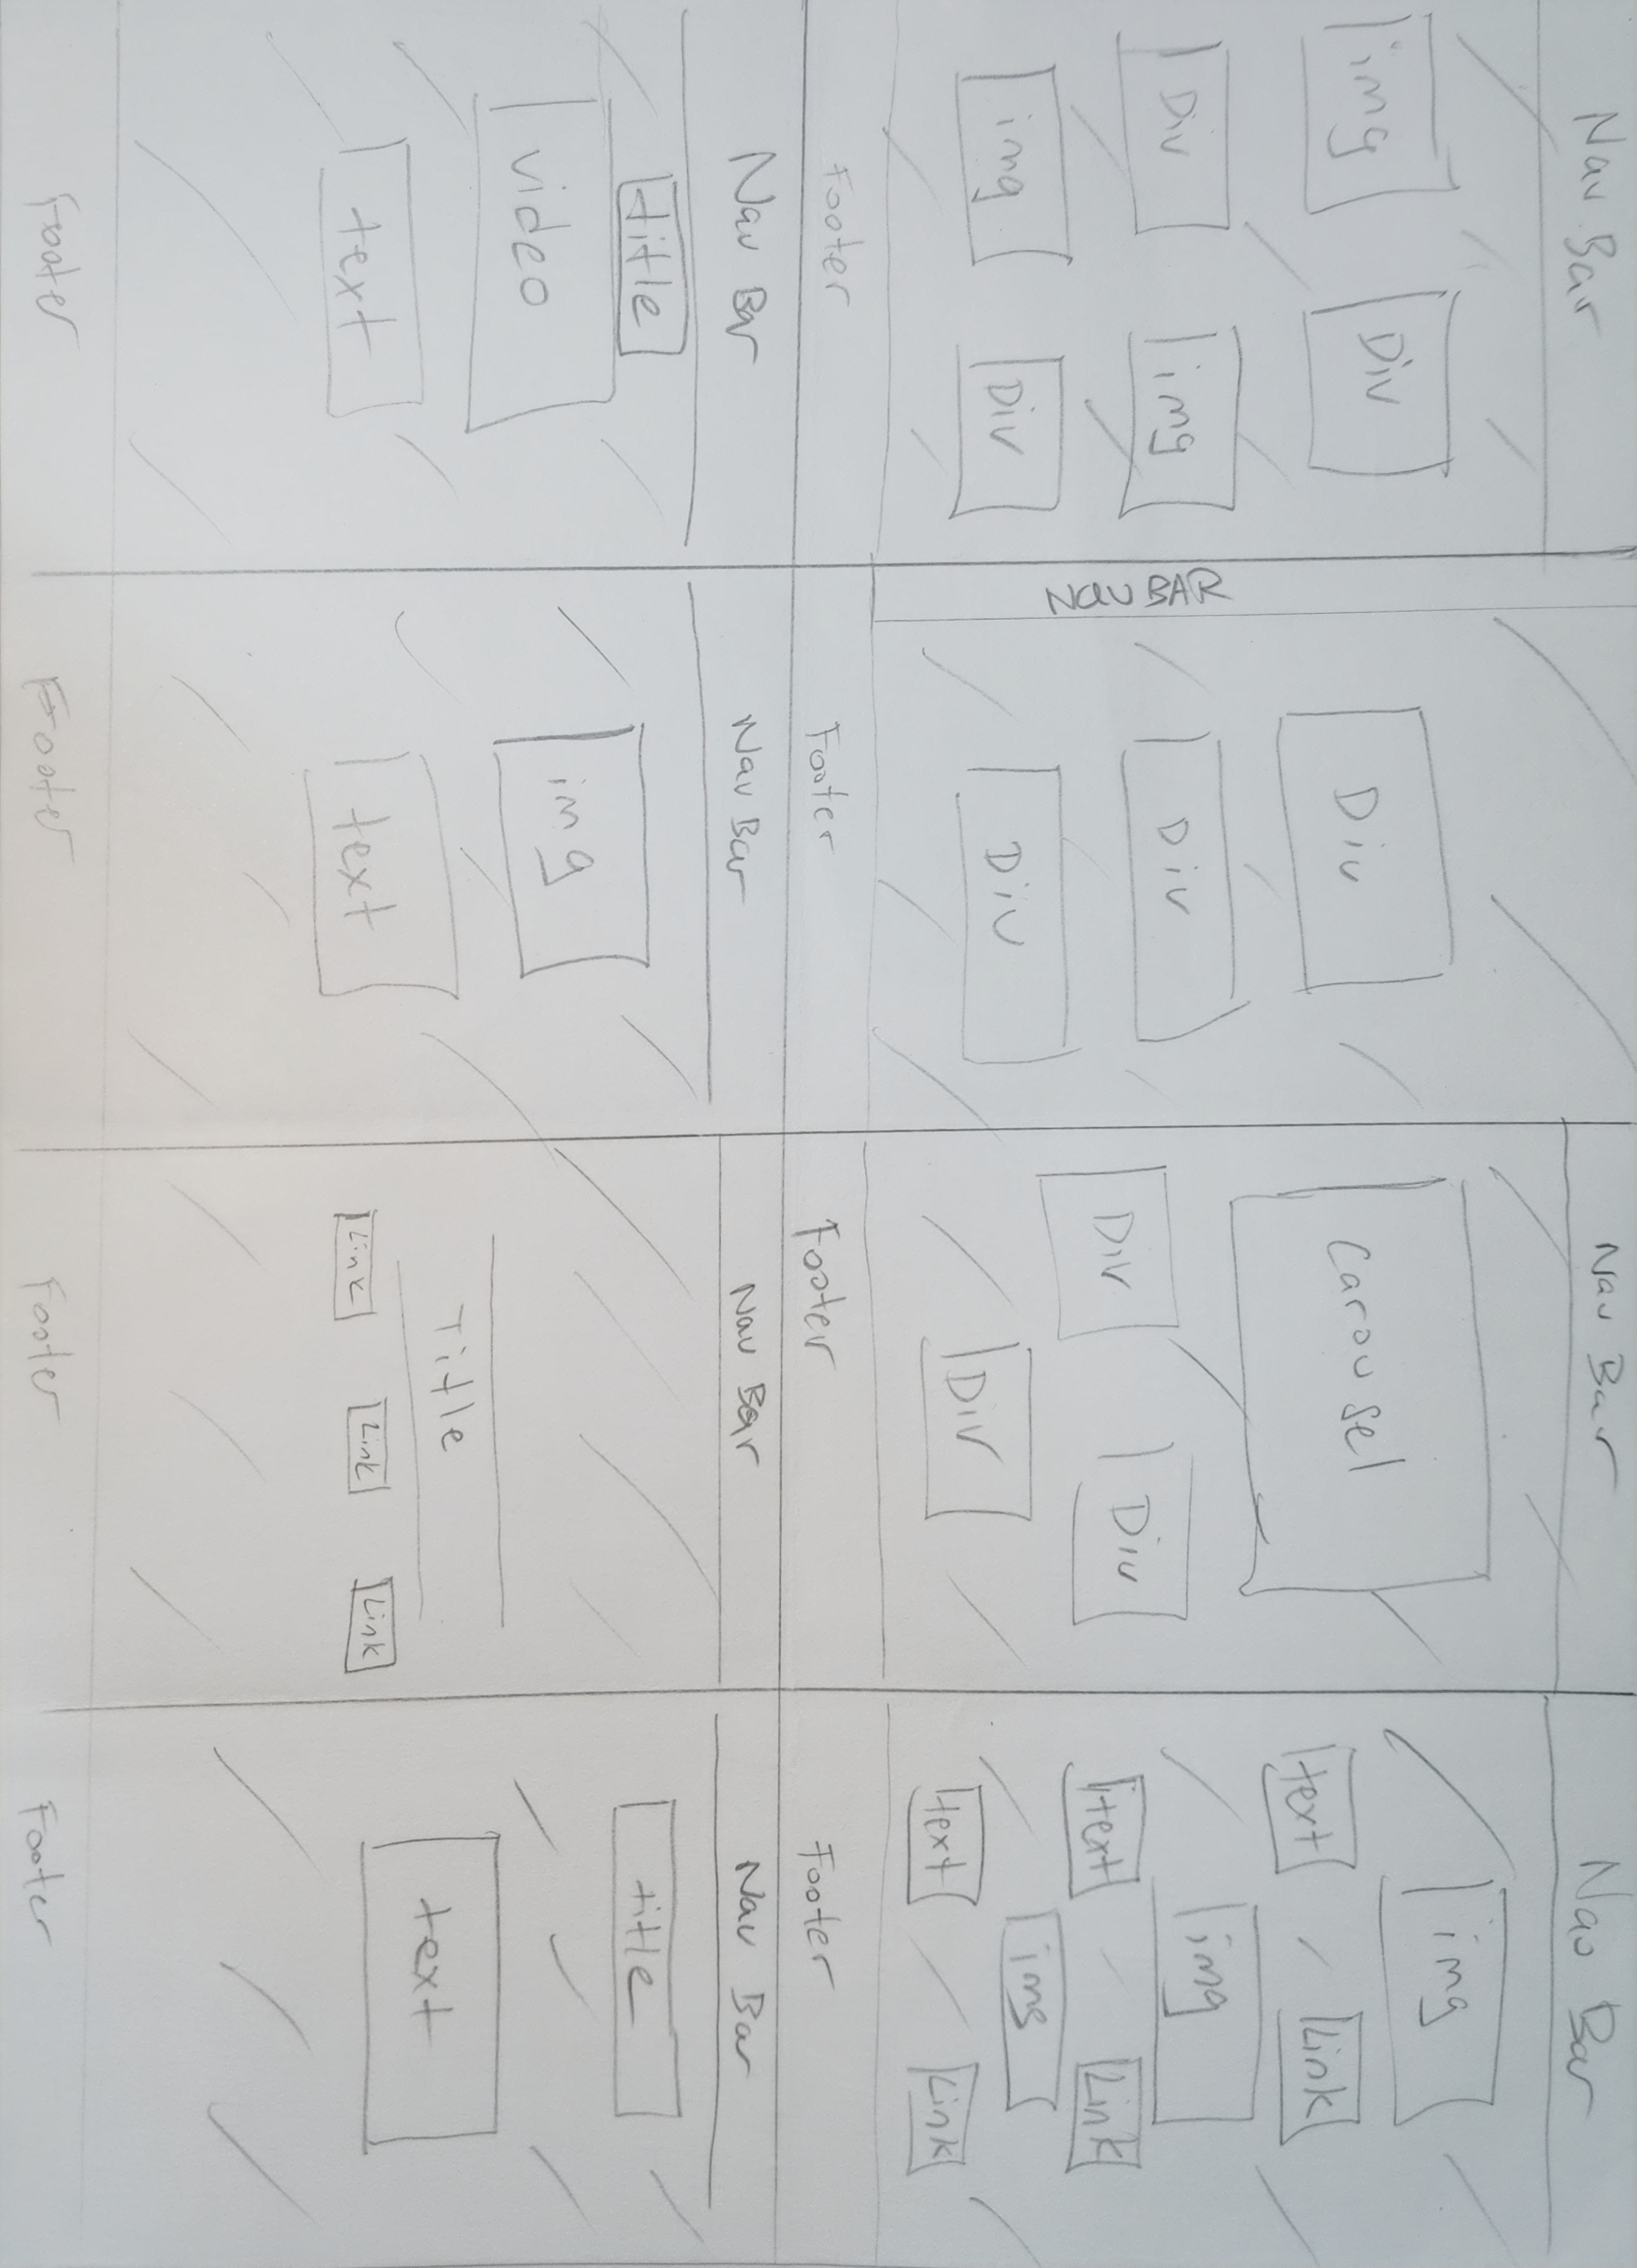 Nav Bar
img Div
Div img
img Div
Footer
Nav BAR
Div
Div
Div
Footer
Nav Bar
Carousel
Div Div
Div
Footer
Nav Bar
img
text Link
img
text Link
img
text Link
Footer
Nav Bar
title
video
text
Footer
Nav Bar
img
text
Footer
Nav Bar
Title
Link Link Link
Footer
Nav Bar
title
text
Footer